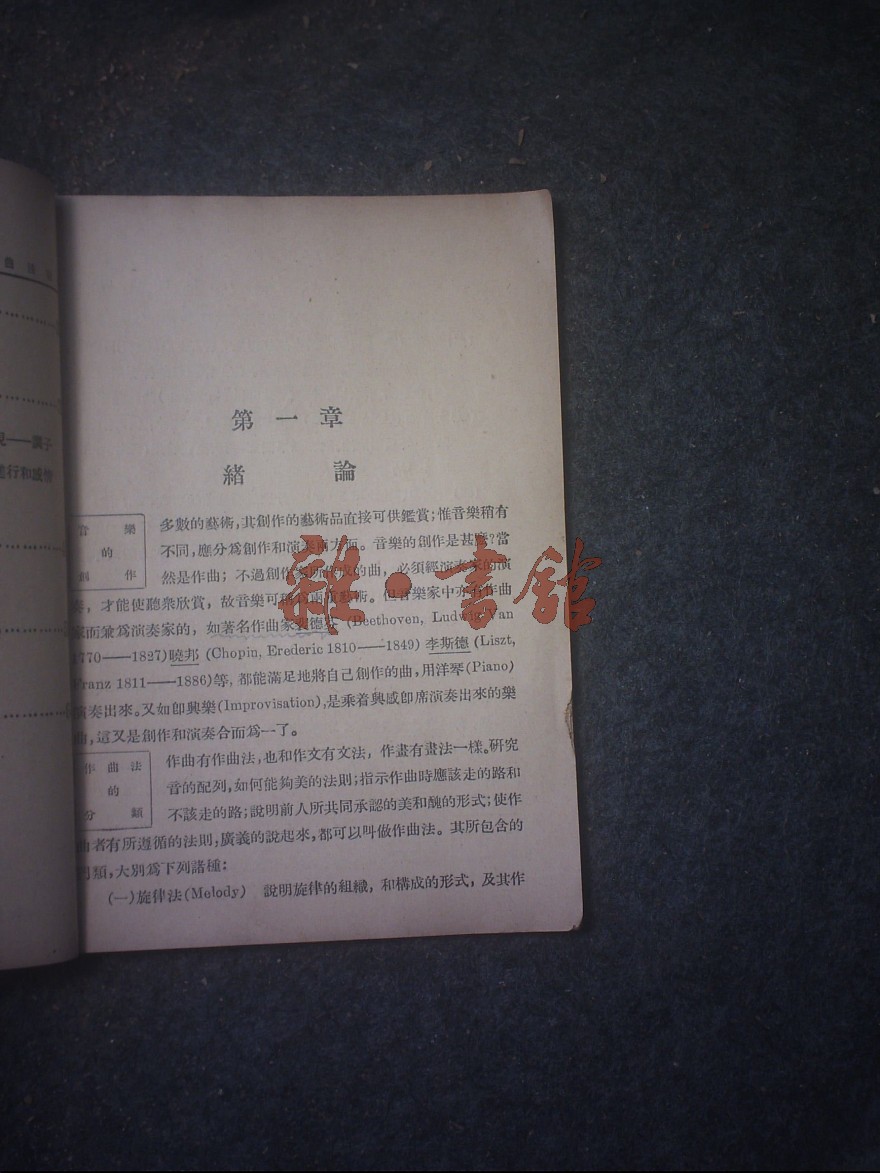 第一章
緒論
音樂
的
創作
多數的藝術,其創作的藝術品直接可供鑑賞;惟音樂稍有
不同,應分爲創作和演奏兩方面。音樂的創作是甚麼?當
然是作曲;不過創作家所作成的曲,必須經演奏家的演
奏,才能使聽衆欣賞,故音樂可稱爲兩重藝術。但音樂家中亦有作曲
家而兼爲演奏家的,如著名作曲家裴德芬 (Beethoven, Ludwig Van
1770——1827)曉邦 (Chopin, Erederic 1810——1849) 李斯德 (Liszt,
Franz 1811——1886)等,都能滿足地將自己創作的曲,用洋琴(Piano)
演奏出來。又如卽興樂(Improvisation),是乘着興感卽席演奏出來的樂
曲,這又是創作和演奏合而爲一了。
作曲法
的
分類
作曲有作曲法,也和作文有文法,作畫有畫法一樣。研究
音的配列,如何能夠美的法則;指示作曲時應該走的路和
不該走的路;說明前人所共同承認的美和醜的形式;使作
曲者有所遵循的法則,廣義的說起來,都可以叫做作曲法。其所包含的
門類,大別爲下列諸種:
(一)旋律法(Melody) 說明旋律的組織,和構成的形式,及其作
——調子
進行和感情
雜·書館